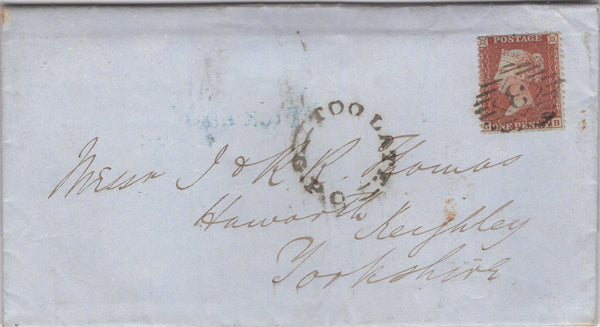 POSTAGE
8
ONE PENNY
G B
TOO LATE
G.P.O
Messrs J & R. R. Thomas
Haworth Keighley
Yorkshire